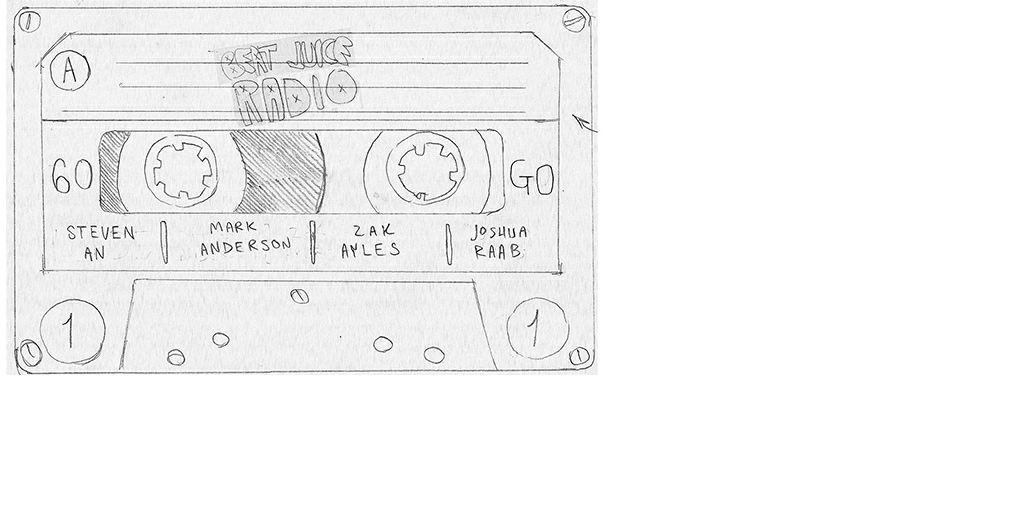 A
BEAT JUICE
RADIO
60
GO
STEVEN
AN
MARK
ANDERSON
ZAK
AYLES
JOSHUA
RAAB
1
1